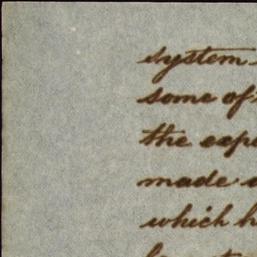 system
some of
the expe
made
which h